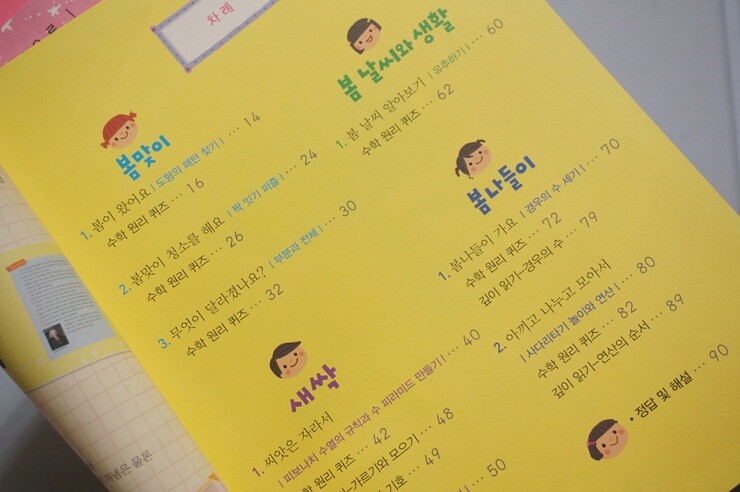 차례
봄맞이
1. 봄이 왔어요 | 도형의 패턴 찾기 | … 14
수학 원리 퀴즈 … 16
2. 봄맞이 청소를 해요 | 짝 맞기 퍼즐 | … 24
수학 원리 퀴즈 … 26
3. 무엇이 달라졌나요? | 부분과 전체 | … 30
수학 원리 퀴즈 … 32
새싹
1. 씨앗은 자라서
| 피보나치 수열의 규칙과 수 피라미드 만들기 | … 40
수학 원리 퀴즈 … 42
–가르기와 모으기 … 48
기호 … 49
… 50
봄 날씨와 생활
1. 봄 날씨 알아보기 | 유추하기 | … 60
수학 원리 퀴즈 … 62
봄나들이
1. 봄나들이 가요 | 경우의 수 세기 | … 70
수학 원리 퀴즈 … 72
깊이 읽기–경우의 수 … 79
2. 아끼고 나누고 모아서
| 사다리타기 놀이와 연산 | … 80
수학 원리 퀴즈 … 82
깊이 읽기–연산의 순서 … 89
• 정답 및 해설 … 90
개념은 물론